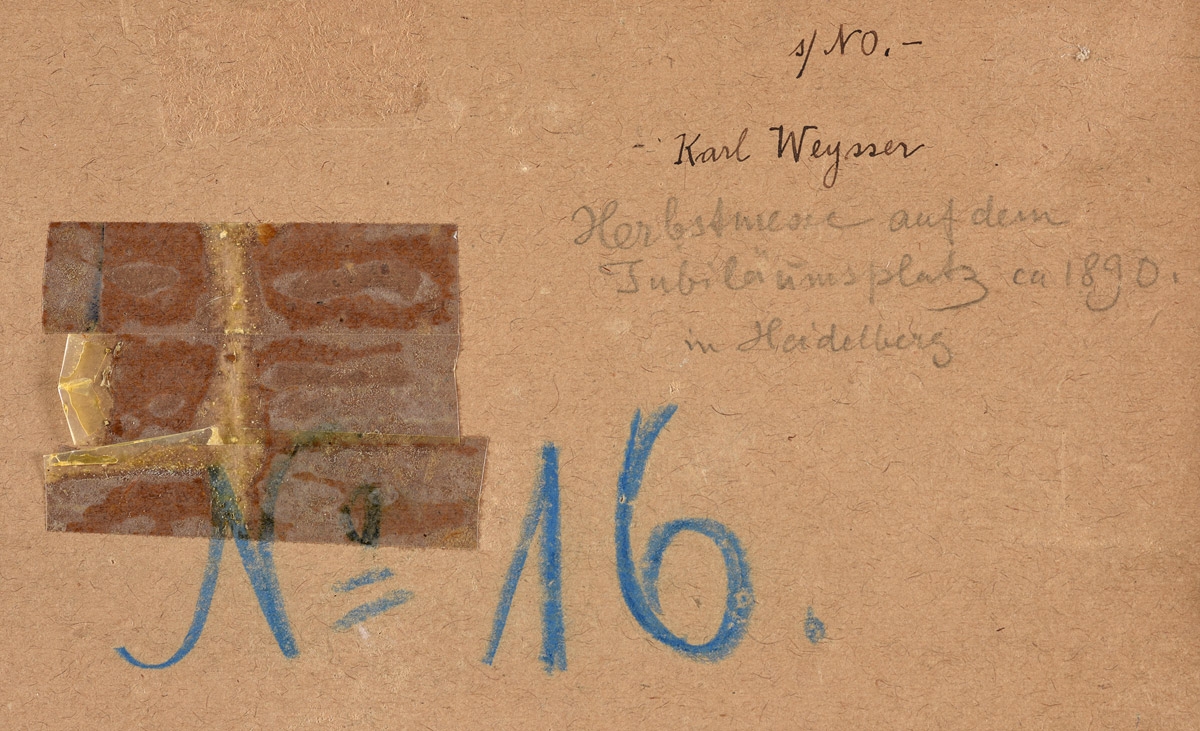 s/ NO.-
Karl Weysser
Herbstmesse auf dem
Jubiläumsplatz ca 1890.
in Heidelberg
No 16.